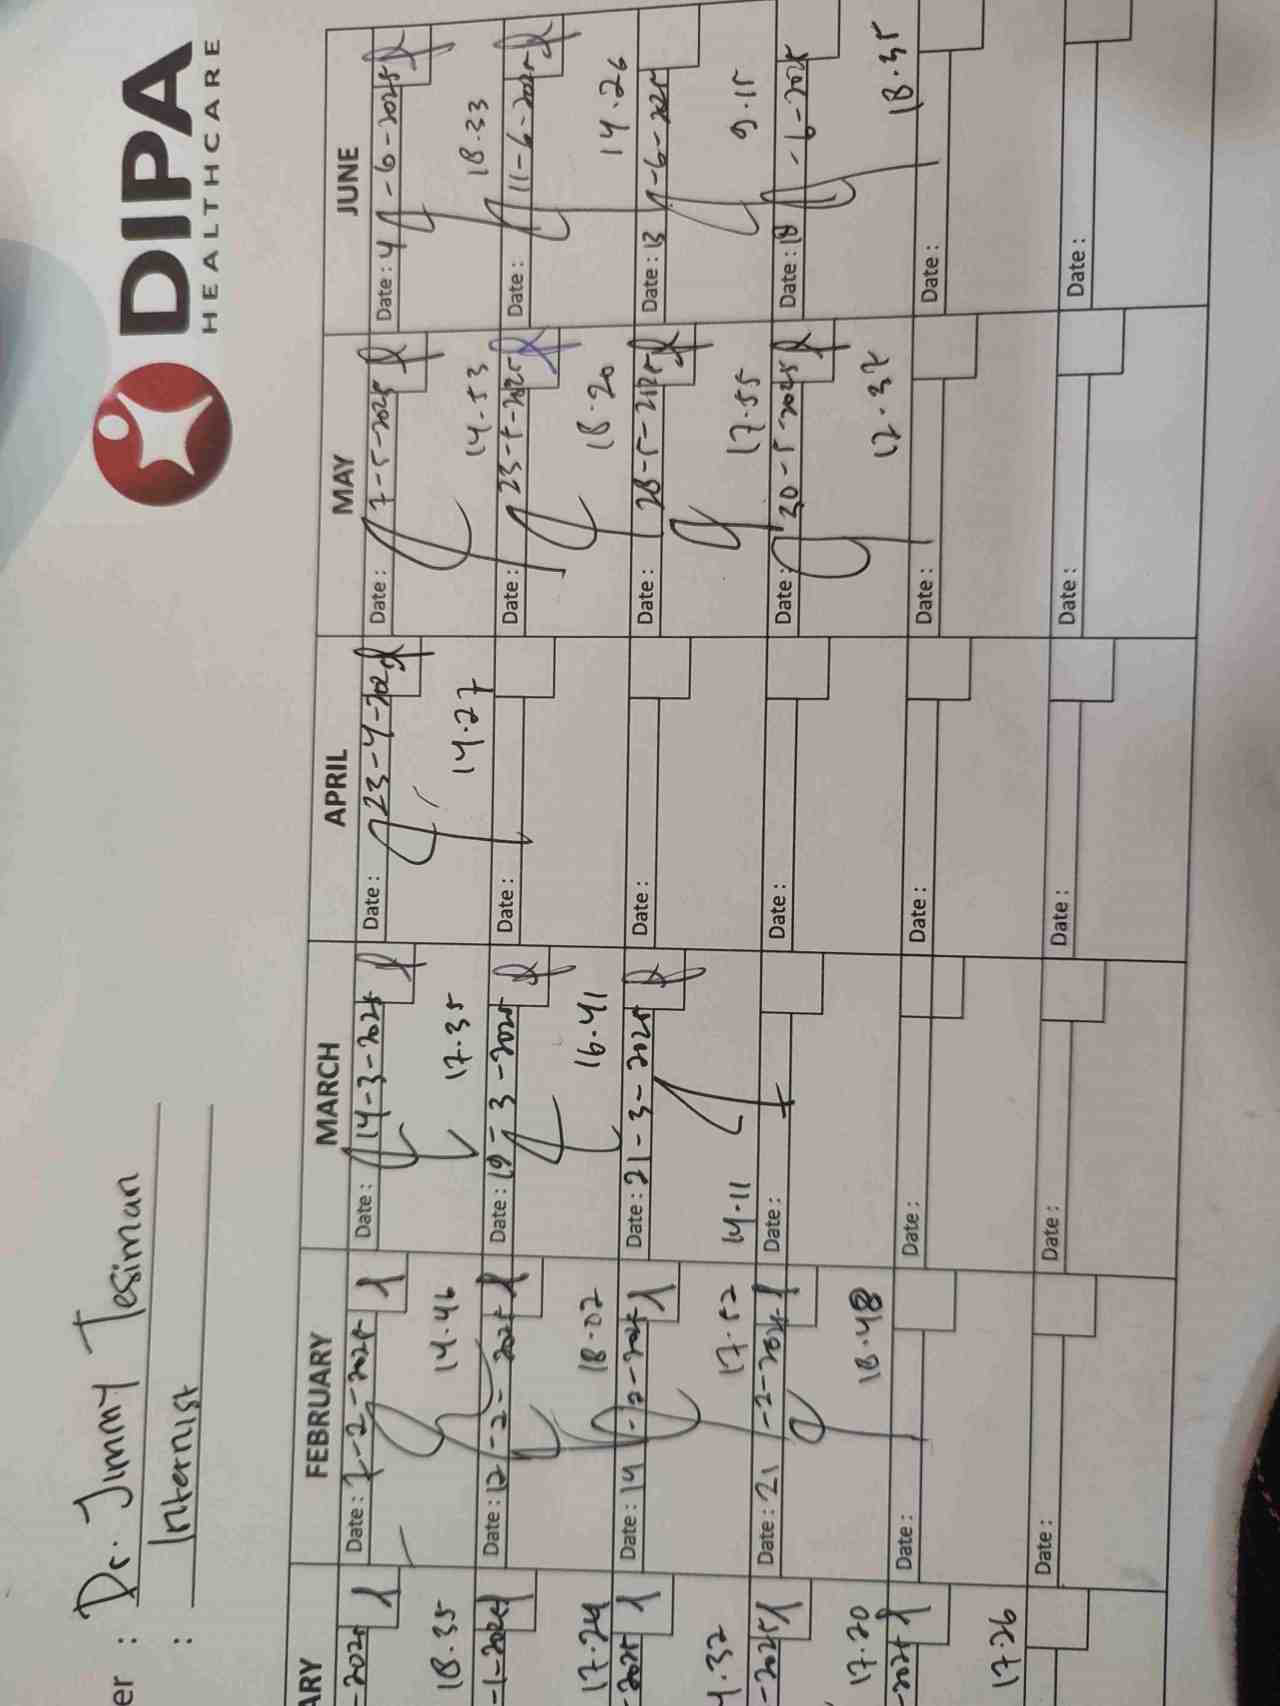 DIPA
HEALTHCARE
er : Dr. Jimmy Tesiman
: Internist
ARY FEBRUARY MARCH APRIL MAY JUNE
-2025 Date : 7-2-2025 Date : 14-3-2025 Date : 23-4-202 Date : 7-5-2025 Date : 4-6-2025
18.35 14.46 17.35 14.27 14.53 18.33
-1-2025 Date : 12-2-2025 Date : 19-3-2025 Date : Date : 23-5-2025 Date : 11-6-2025
17.29 18.02 16.41 18.20 14.26
2025 Date : 14-2-2025 Date : 21-3-2025 Date : Date : 28-5-2125 Date : 13-6-2025
.32 17.52 14.11 17.55 9.15
-2025 Date : 21-2-2025 Date : Date : Date : 30-5-2025 Date : 18-6-2025
17.20 18.48 17.37 18.35
-2025 Date : Date : Date : Date : Date :
17.26
Date : Date : Date : Date : Date :